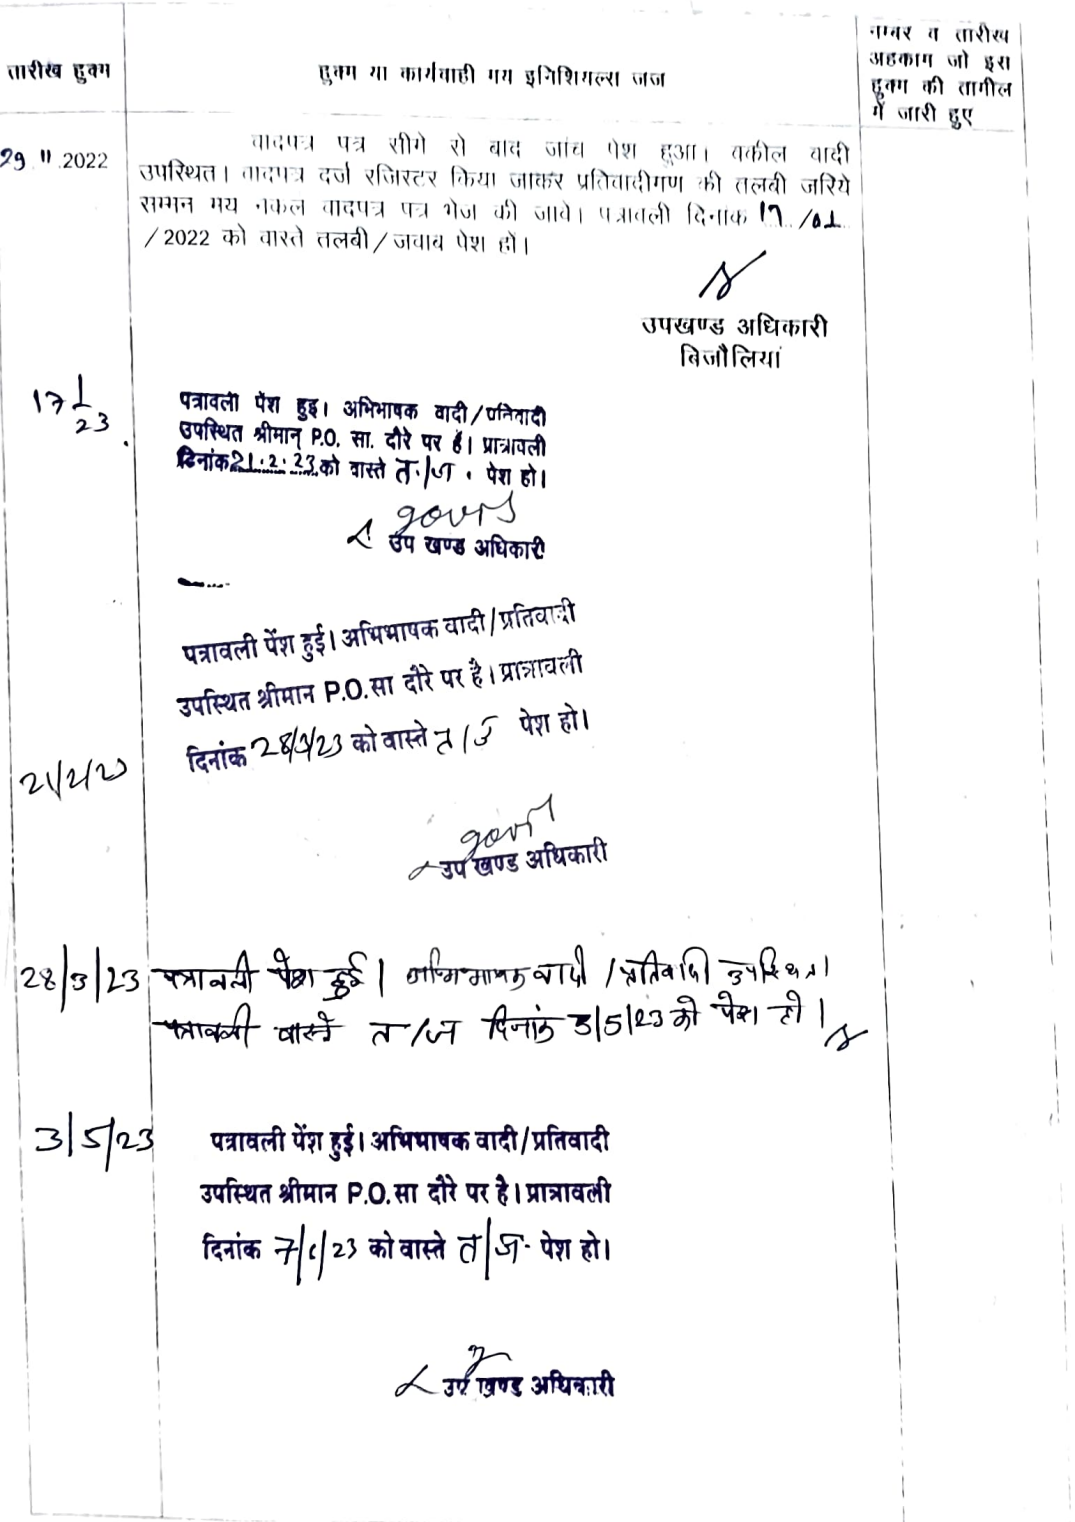 तारीख हुक्म
हुक्म या कार्यवाही मय इनिशियल्स जज
नम्बर व तारीख
अहकाम जो इस
हुक्म की तामील
में जारी हुए
29.11.2022
वादपत्र पत्र सीगे से बाद जांच पेश हुआ। वकील वादी
उपस्थित। वादपत्र दर्ज रजिस्टर किया जाकर प्रतिवादीगण की तलबी जरिये
सम्मन मय नकल वादपत्र पत्र भेज की जावे। पत्रावली दिनांक 17/01
/2022 को वास्ते तलबी/जवाब पेश हो।
उपखण्ड अधिकारी
बिजौलियां
17/1/23
पत्रावली पेंश हुइ। अभिभाषक वादी/प्रतिवादी
उपस्थित श्रीमान् P.O. सा. दौरे पर हैं। प्रात्रावली
दिनांक 21.2.23 को वास्ते त./ज. पेश हो।
उप खण्ड अधिकारी
पत्रावली पेंश हुई। अभिभाषक वादी/प्रतिवादी
उपस्थित श्रीमान P.O. सा दौरे पर है। प्रात्रावली
दिनांक 28/3/23 को वास्ते त/ज पेश हो।
21/2/23
उप खण्ड अधिकारी
28/3/23 पत्रावली पेश हुई। अभिभाषक वादी/प्रतिवादी उपस्थित।
पत्रावली वास्ते त/ज दिनांक 3/5/23 को पेश हो।
3/5/23
पत्रावली पेंश हुई। अभिभाषक वादी/प्रतिवादी
उपस्थित श्रीमान P.O. सा दौरे पर है। प्रात्रावली
दिनांक 7/6/23 को वास्ते त/ज. पेश हो।
उप खण्ड अधिकारी